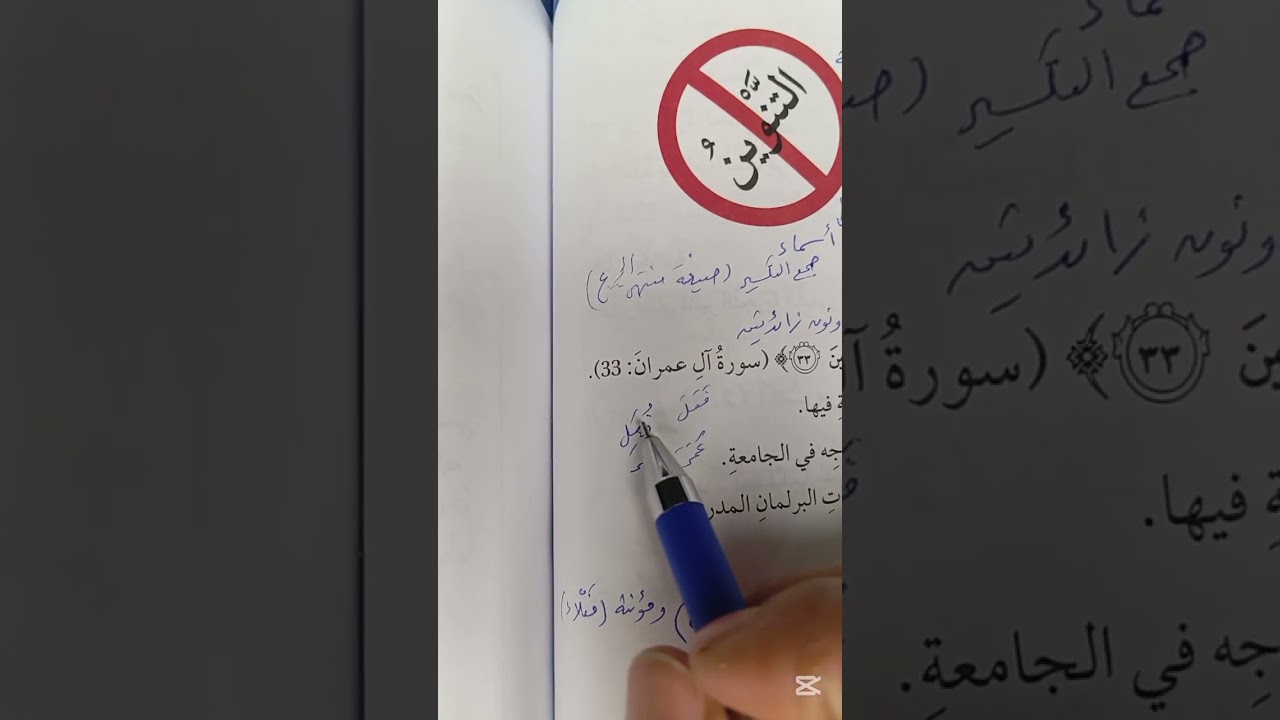 التنوينُ
أسماء
جمع التكسير (صيغة منتهى
ونون زائدتين
ينَ ﴿٣٣﴾ (سورةُ آلِ عمرانَ: 33).
ةِ فيها.
فُعَلَ
عُمَرَ
جِه في الجامعةِ.
تِ البرلمانِ المدر
ومؤنثه (فَعْلاء)